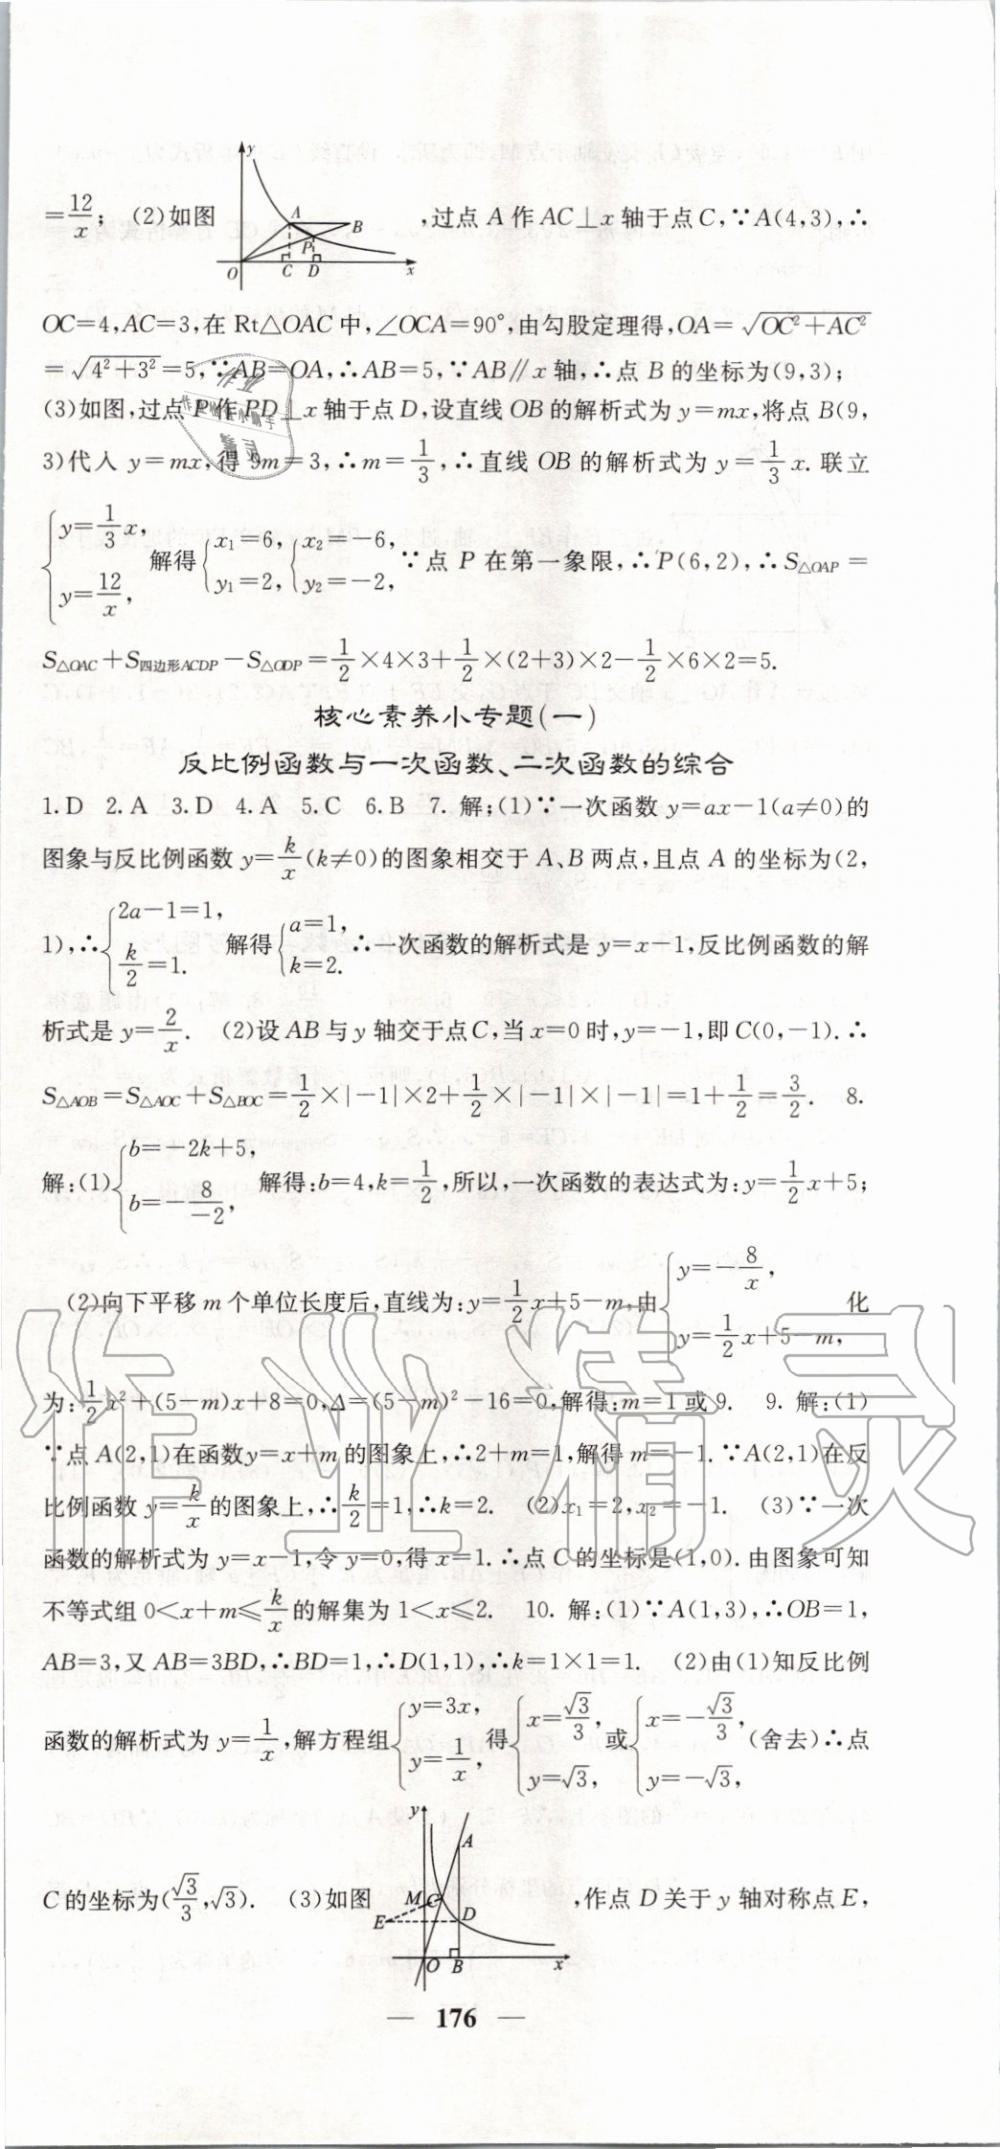 =12/x; (2)如图 y A B P O C D x ,过点 A 作 AC⊥x 轴于点 C,∵A(4,3),∴
OC=4,AC=3,在 Rt△OAC 中,∠OCA=90°,由勾股定理得,OA=√(OC²+AC²)
=√(4²+3²)=5,∵AB=OA,∴AB=5,∵AB∥x 轴,∴点 B 的坐标为(9,3);
(3)如图,过点 P 作 PD⊥x 轴于点 D,设直线 OB 的解析式为 y=mx,将点 B(9,
3)代入 y=mx,得 9m=3,∴m=1/3,∴直线 OB 的解析式为 y=1/3 x. 联立
{y=1/3 x, y=12/x, 解得{x₁=6, y₁=2, {x₂=-6, y₂=-2, ∵点 P 在第一象限,∴P(6,2),∴S△OAP=
S△OAC+S四边形ACDP-S△ODP=1/2×4×3+1/2×(2+3)×2-1/2×6×2=5.
核心素养小专题(一)
反比例函数与一次函数、二次函数的综合
1.D 2.A 3.D 4.A 5.C 6.B 7. 解:(1)∵一次函数 y=ax-1(a≠0)的
图象与反比例函数 y=k/x(k≠0)的图象相交于 A、B 两点,且点 A 的坐标为(2,
1),∴{2a-1=1, k/2=1. 解得{a=1, k=2. ∴一次函数的解析式是 y=x-1,反比例函数的解
析式是 y=2/x. (2)设 AB 与 y 轴交于点 C,当 x=0 时,y=-1,即 C(0,-1).∴
S△AOB=S△AOC+S△BOC=1/2×|-1|×2+1/2×|-1|×|-1|=1+1/2=3/2. 8.
解:(1){b=-2k+5, b=-8/-2, 解得:b=4,k=1/2,所以,一次函数的表达式为:y=1/2 x+5;
(2)向下平移 m 个单位长度后,直线为:y=1/2 x+5-m,由{y=-8/x, y=1/2 x+5-m, 化
为:1/2 x²+(5-m)x+8=0,Δ=(5-m)²-16=0,解得:m=1 或 9. 9. 解:(1)
∵点 A(2,1)在函数y=x+m 的图象上,∴2+m=1,解得 m=-1.∵A(2,1)在反
比例函数 y=k/x 的图象上,∴k/2=1,∴k=2. (2)x₁=2,x₂=-1. (3)∵一次
函数的解析式为 y=x-1,令 y=0,得 x=1.∴点 C 的坐标是(1,0). 由图象可知
不等式组 0<x+m≤k/x 的解集为 1<x≤2. 10. 解:(1)∵A(1,3),∴OB=1,
AB=3,又 AB=3BD,∴BD=1,∴D(1,1),∴k=1×1=1. (2)由(1)知反比例
函数的解析式为 y=1/x,解方程组{y=3x, y=1/x, 得{x=√3/3, y=√3, 或{x=-√3/3, y=-√3, (舍去)∴点
C 的坐标为(√3/3,√3). (3)如图 y A M C E D O B x ,作点 D 关于 y 轴对称点 E,
— 176 —
作业精灵